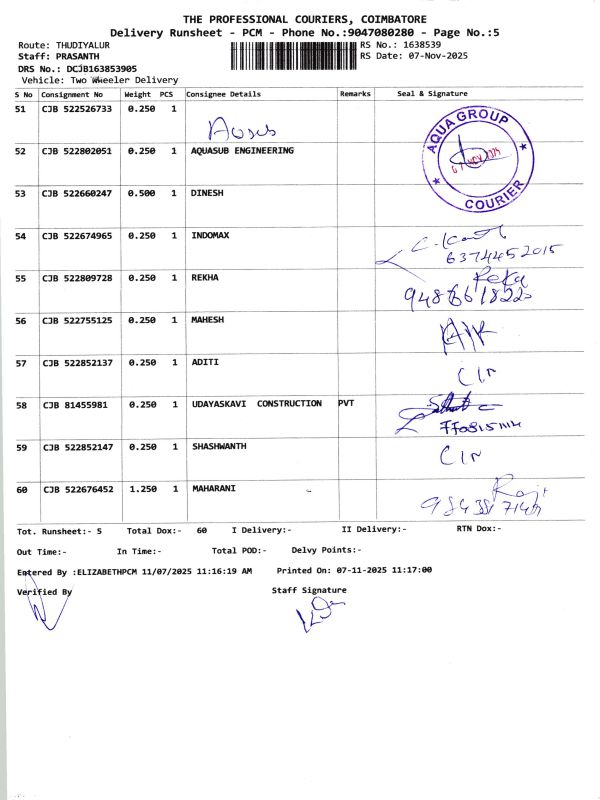 THE PROFESSIONAL COURIERS, COIMBATORE
Delivery Runsheet - PCM - Phone No.:9047080280 - Page No.:5
Route: THUDIYALUR RS No.: 1638539
Staff: PRASANTH RS Date: 07-Nov-2025
DRS No.: DCJB163853905
Vehicle: Two Wheeler Delivery
S No Consignment No Weight PCS Consignee Details Remarks Seal & Signature
51 CJB 522526733 0.250 1
AQUA GROUP
COURIER
52 CJB 522802051 0.250 1 AQUASUB ENGINEERING
53 CJB 522660247 0.500 1 DINESH
54 CJB 522674965 0.250 1 INDOMAX
6374452015
55 CJB 522809728 0.250 1 REKHA
56 CJB 522755125 0.250 1 MAHESH
57 CJB 522852137 0.250 1 ADITI
58 CJB 81455981 0.250 1 UDAYASKAVI CONSTRUCTION PVT
59 CJB 522852147 0.250 1 SHASHWANTH
60 CJB 522676452 1.250 1 MAHARANI
Tot. Runsheet:- 5 Total Dox:- 60 I Delivery:- II Delivery:- RTN Dox:-
Out Time:- In Time:- Total POD:- Delvy Points:-
Entered By :ELIZABETHPCM 11/07/2025 11:16:19 AM Printed On: 07-11-2025 11:17:00
Verified By Staff Signature